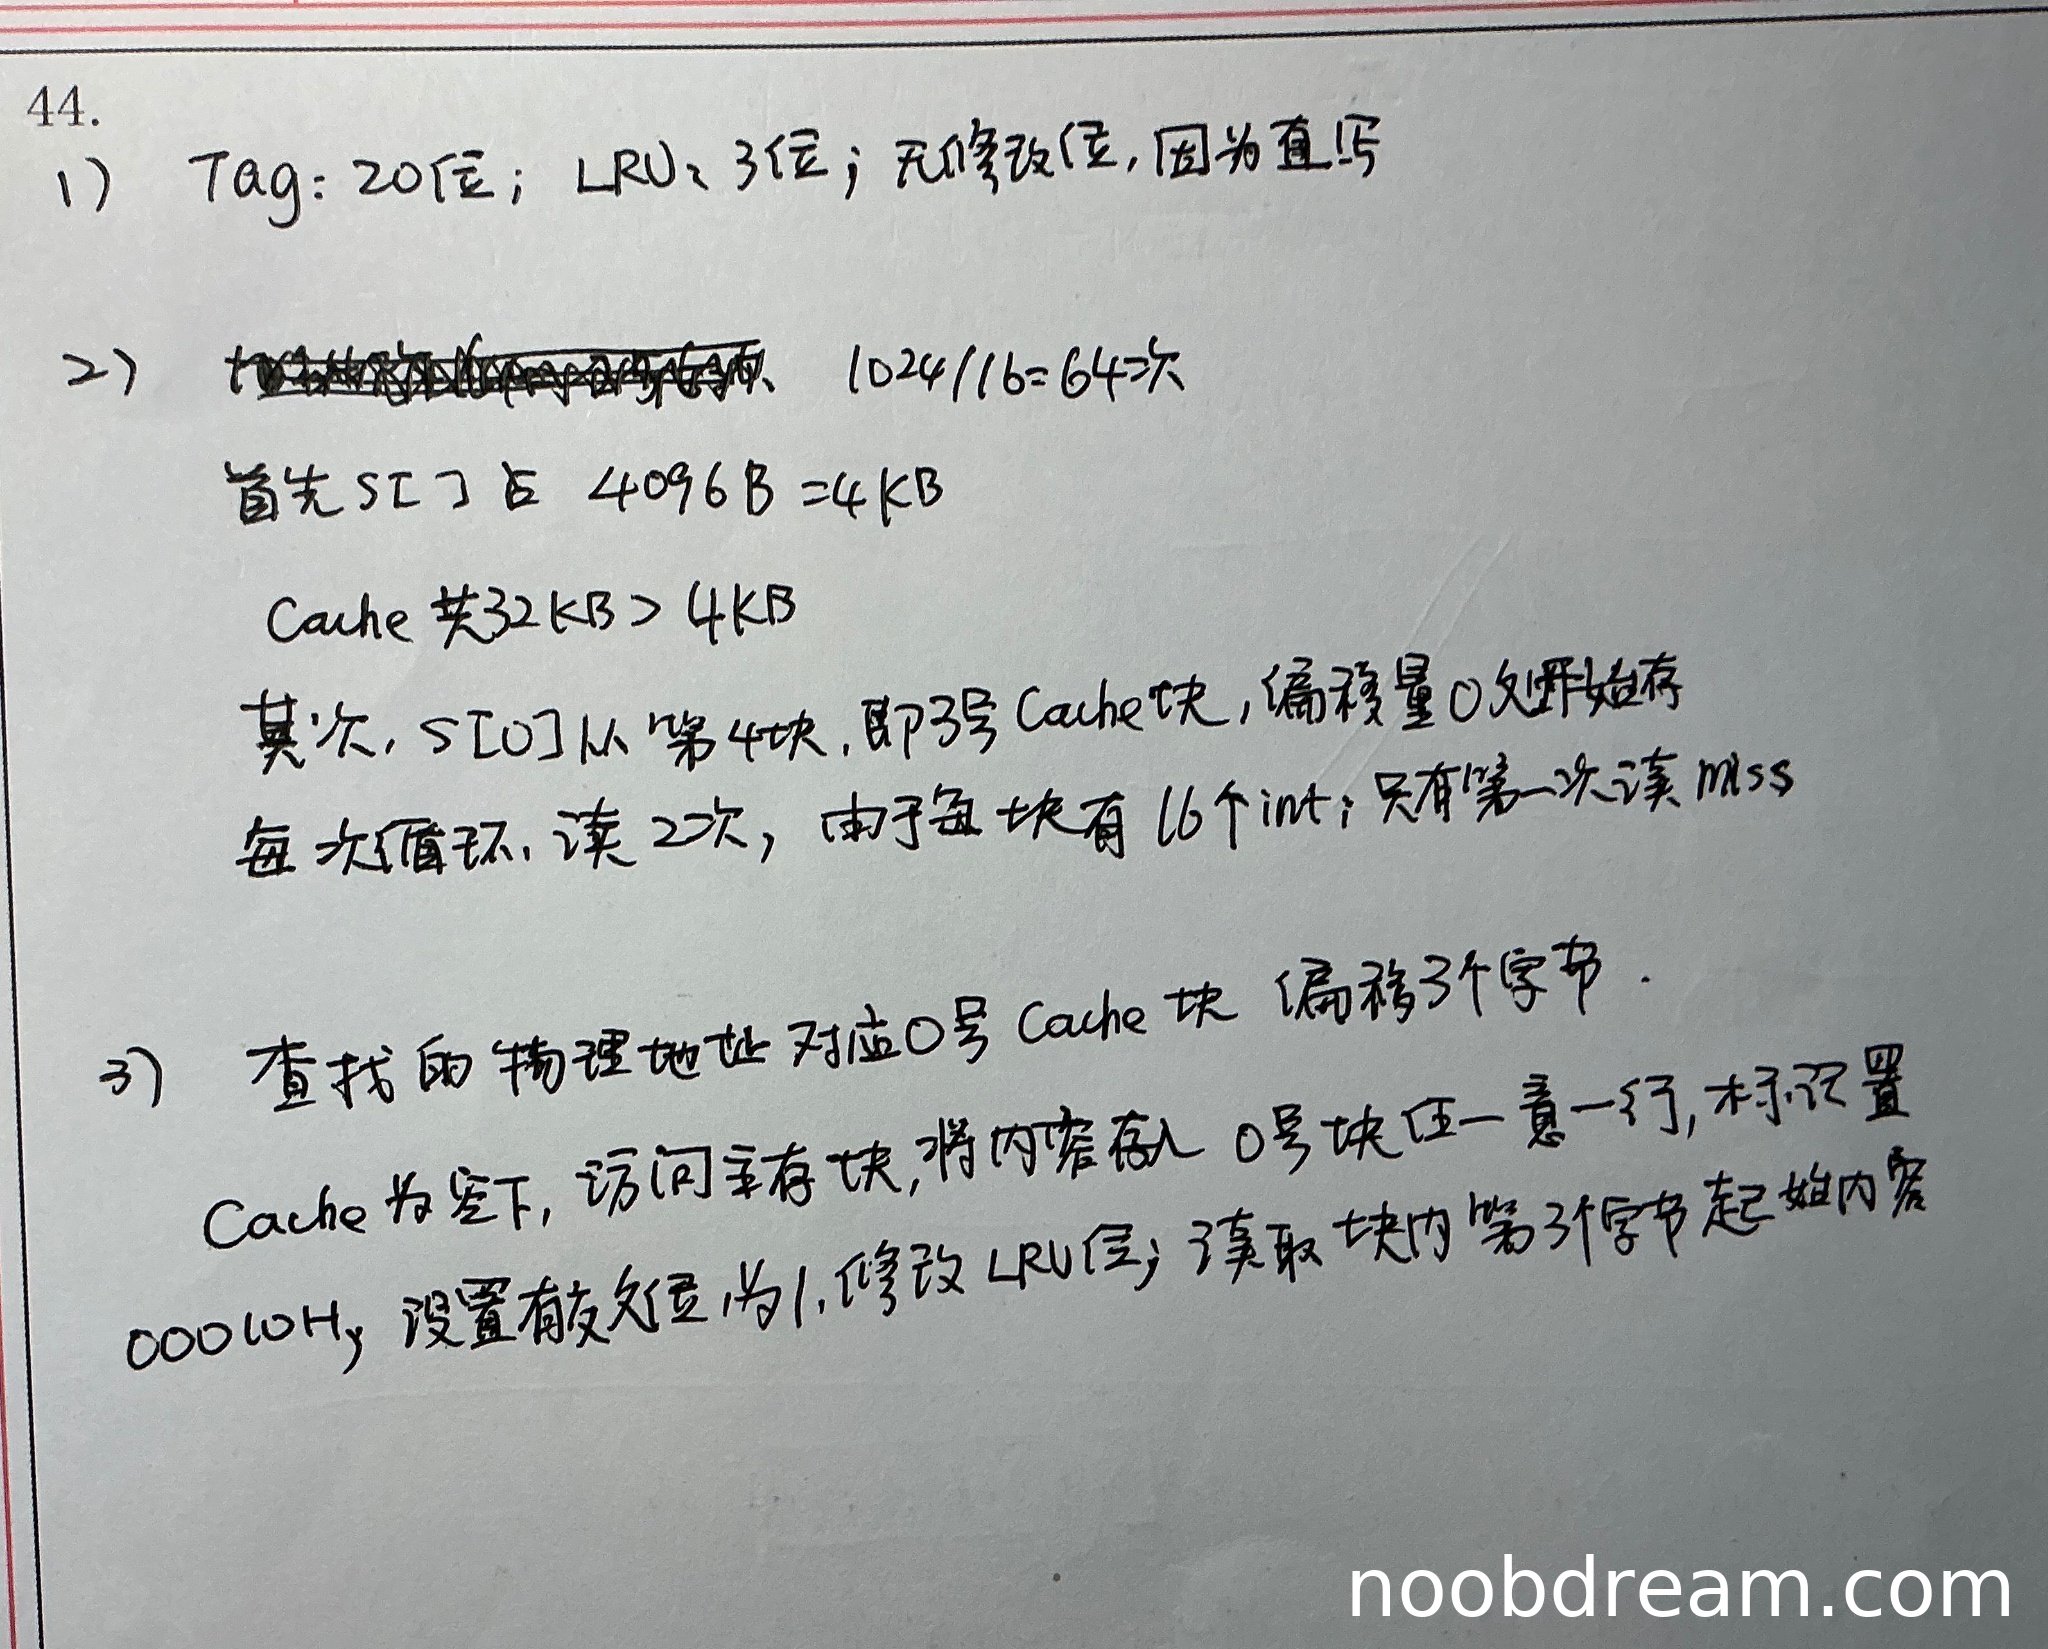 44.
1) Tag: 20位; LRU: 3位; 无修改位, 因为直写
2) 1024/16=64次
首先 S[ ] 占 4096B=4KB
Cache 共32KB>4KB
其次, S[0]从第4块, 即3号Cache块, 偏移量0处开始存
每次循环, 读2次, 由于每块有16个int; 只有第一次读miss
3) 查找的物理地址对应0号Cache块 偏移3个字节.
Cache为空下, 访问主存块, 将内容存入 0号块任一意一行, 标记置
00010H; 设置有效位为1, 修改LRU位; 读取块内第3个字节起始内容
noobdream.com